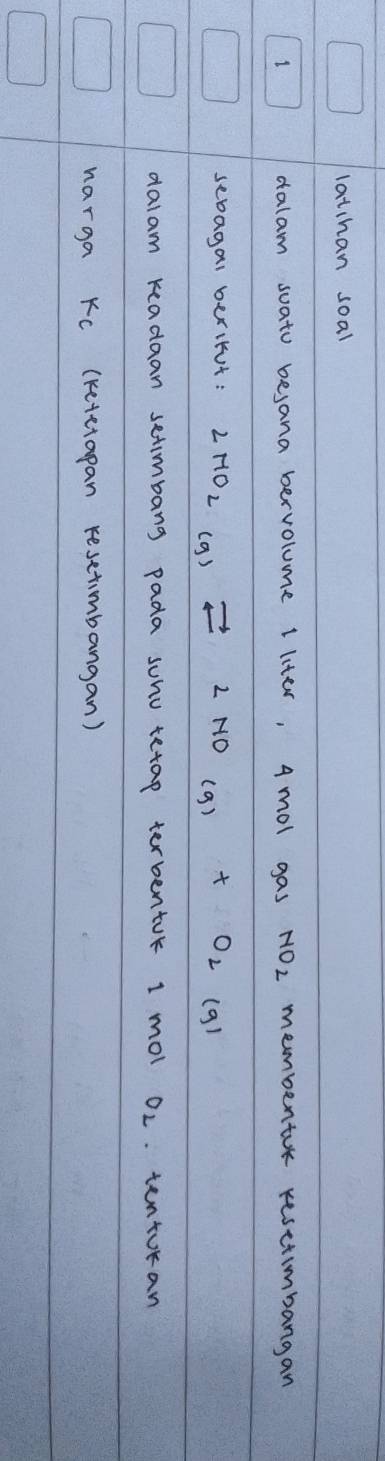 latihan soal
1 dalam suatu bejana bervolume 1 liter, 4 mol gas NO₂ membentuk kesetimbangan
sebagai berikut: 2 NO₂ (g) ⇄ 2 NO (g) + O₂ (g)
dalam keadaan setimbang pada suhu tetap terbentuk 1 mol O₂. tentukan
harga Kc (ketetapan kesetimbangan)